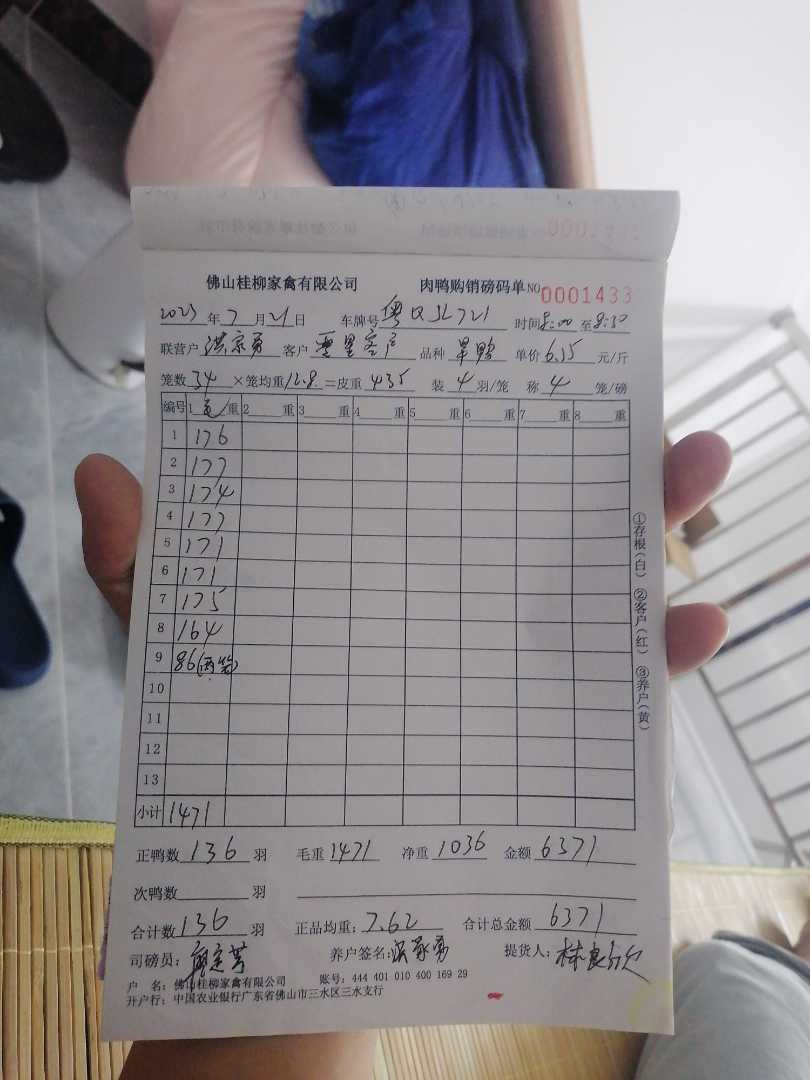 佛山桂柳家禽有限公司 肉鸭购销磅码单 NO 0001433
2023年7月21日 车牌号 粤Q 时间8:00至8:50
联营户 洪家勇 客户 零星客户 品种 旱鸭 单价6.15元/斤
笼数34×笼均重12.8=皮重435 装4羽/笼 称4笼/磅
编号 1毛重 2重 3重 4重 5重 6重 7重 8重
1 176
2 177
3 174
4 177
5 171
6 171
7 175
8 164
9 86(两笼)
10
11
12
13
小计 1471
正鸭数136羽 毛重1471 净重1036 金额6371
次鸭数 羽
合计数136羽 正品均重:7.62 合计总金额6371
司磅员: 养户签名:洪家勇 提货人:林良
户 名:佛山桂柳家禽有限公司 账号:444 401 010 400 169 29
开户行:中国农业银行广东省佛山市三水区三水支行
①存根(白) ②客户(红) ③养户(黄)